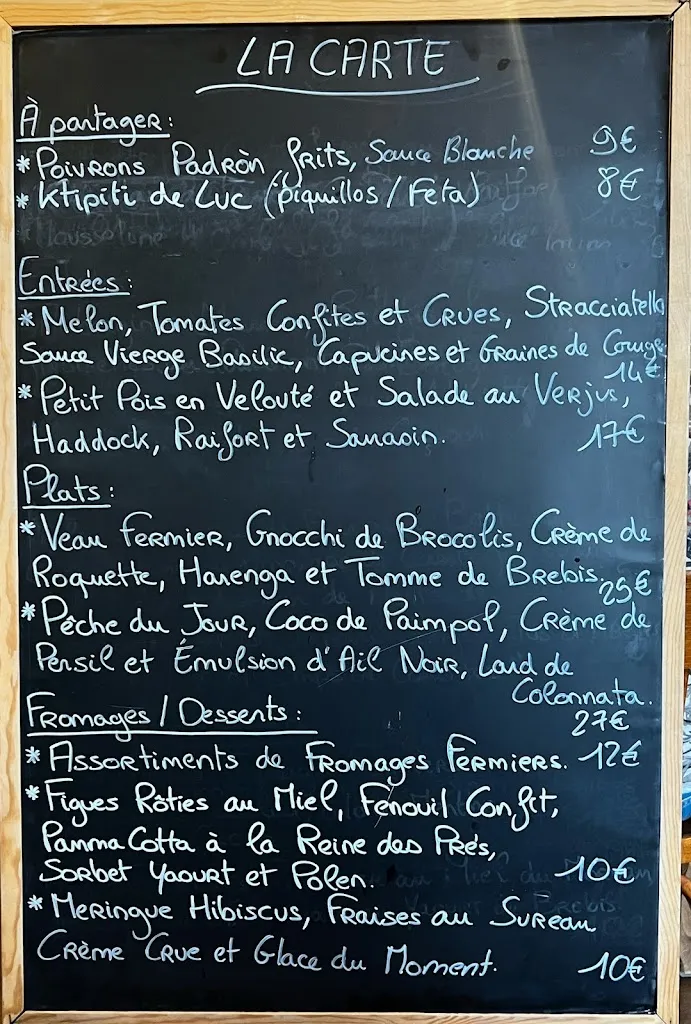 LA CARTE
À partager:
* Poivrons Padròn frits, Sauce Blanche 9€
* Ktipiti de Luc (piquillos / Feta) 8€
Entrées:
* Melon, Tomates Confites et Crues, Stracciatella
Sauce Vierge Basilic, Capucines et Graines de Courge
14€
* Petit Pois en Velouté et Salade au Verjus,
Haddock, Raifort et Sarrasin. 17€
Plats:
* Veau Fermier, Gnocchi de Brocolis, Crème de
Roquette, Harenga et Tomme de Brebis. 25€
* Pêche du Jour, Coco de Paimpol, Crème de
Persil et Émulsion d'Ail Noir, Lard de
Colonnata.
27€
Fromages / Desserts:
* Assortiments de Fromages Fermiers. 12€
* Figues Rôties au Miel, Fenouil Confit,
Panna Cotta à la Reine des Prés,
Sorbet Yaourt et Polen. 10€
* Meringue Hibiscus, Fraises au Sureau
Crème Crue et Glace du Moment. 10€